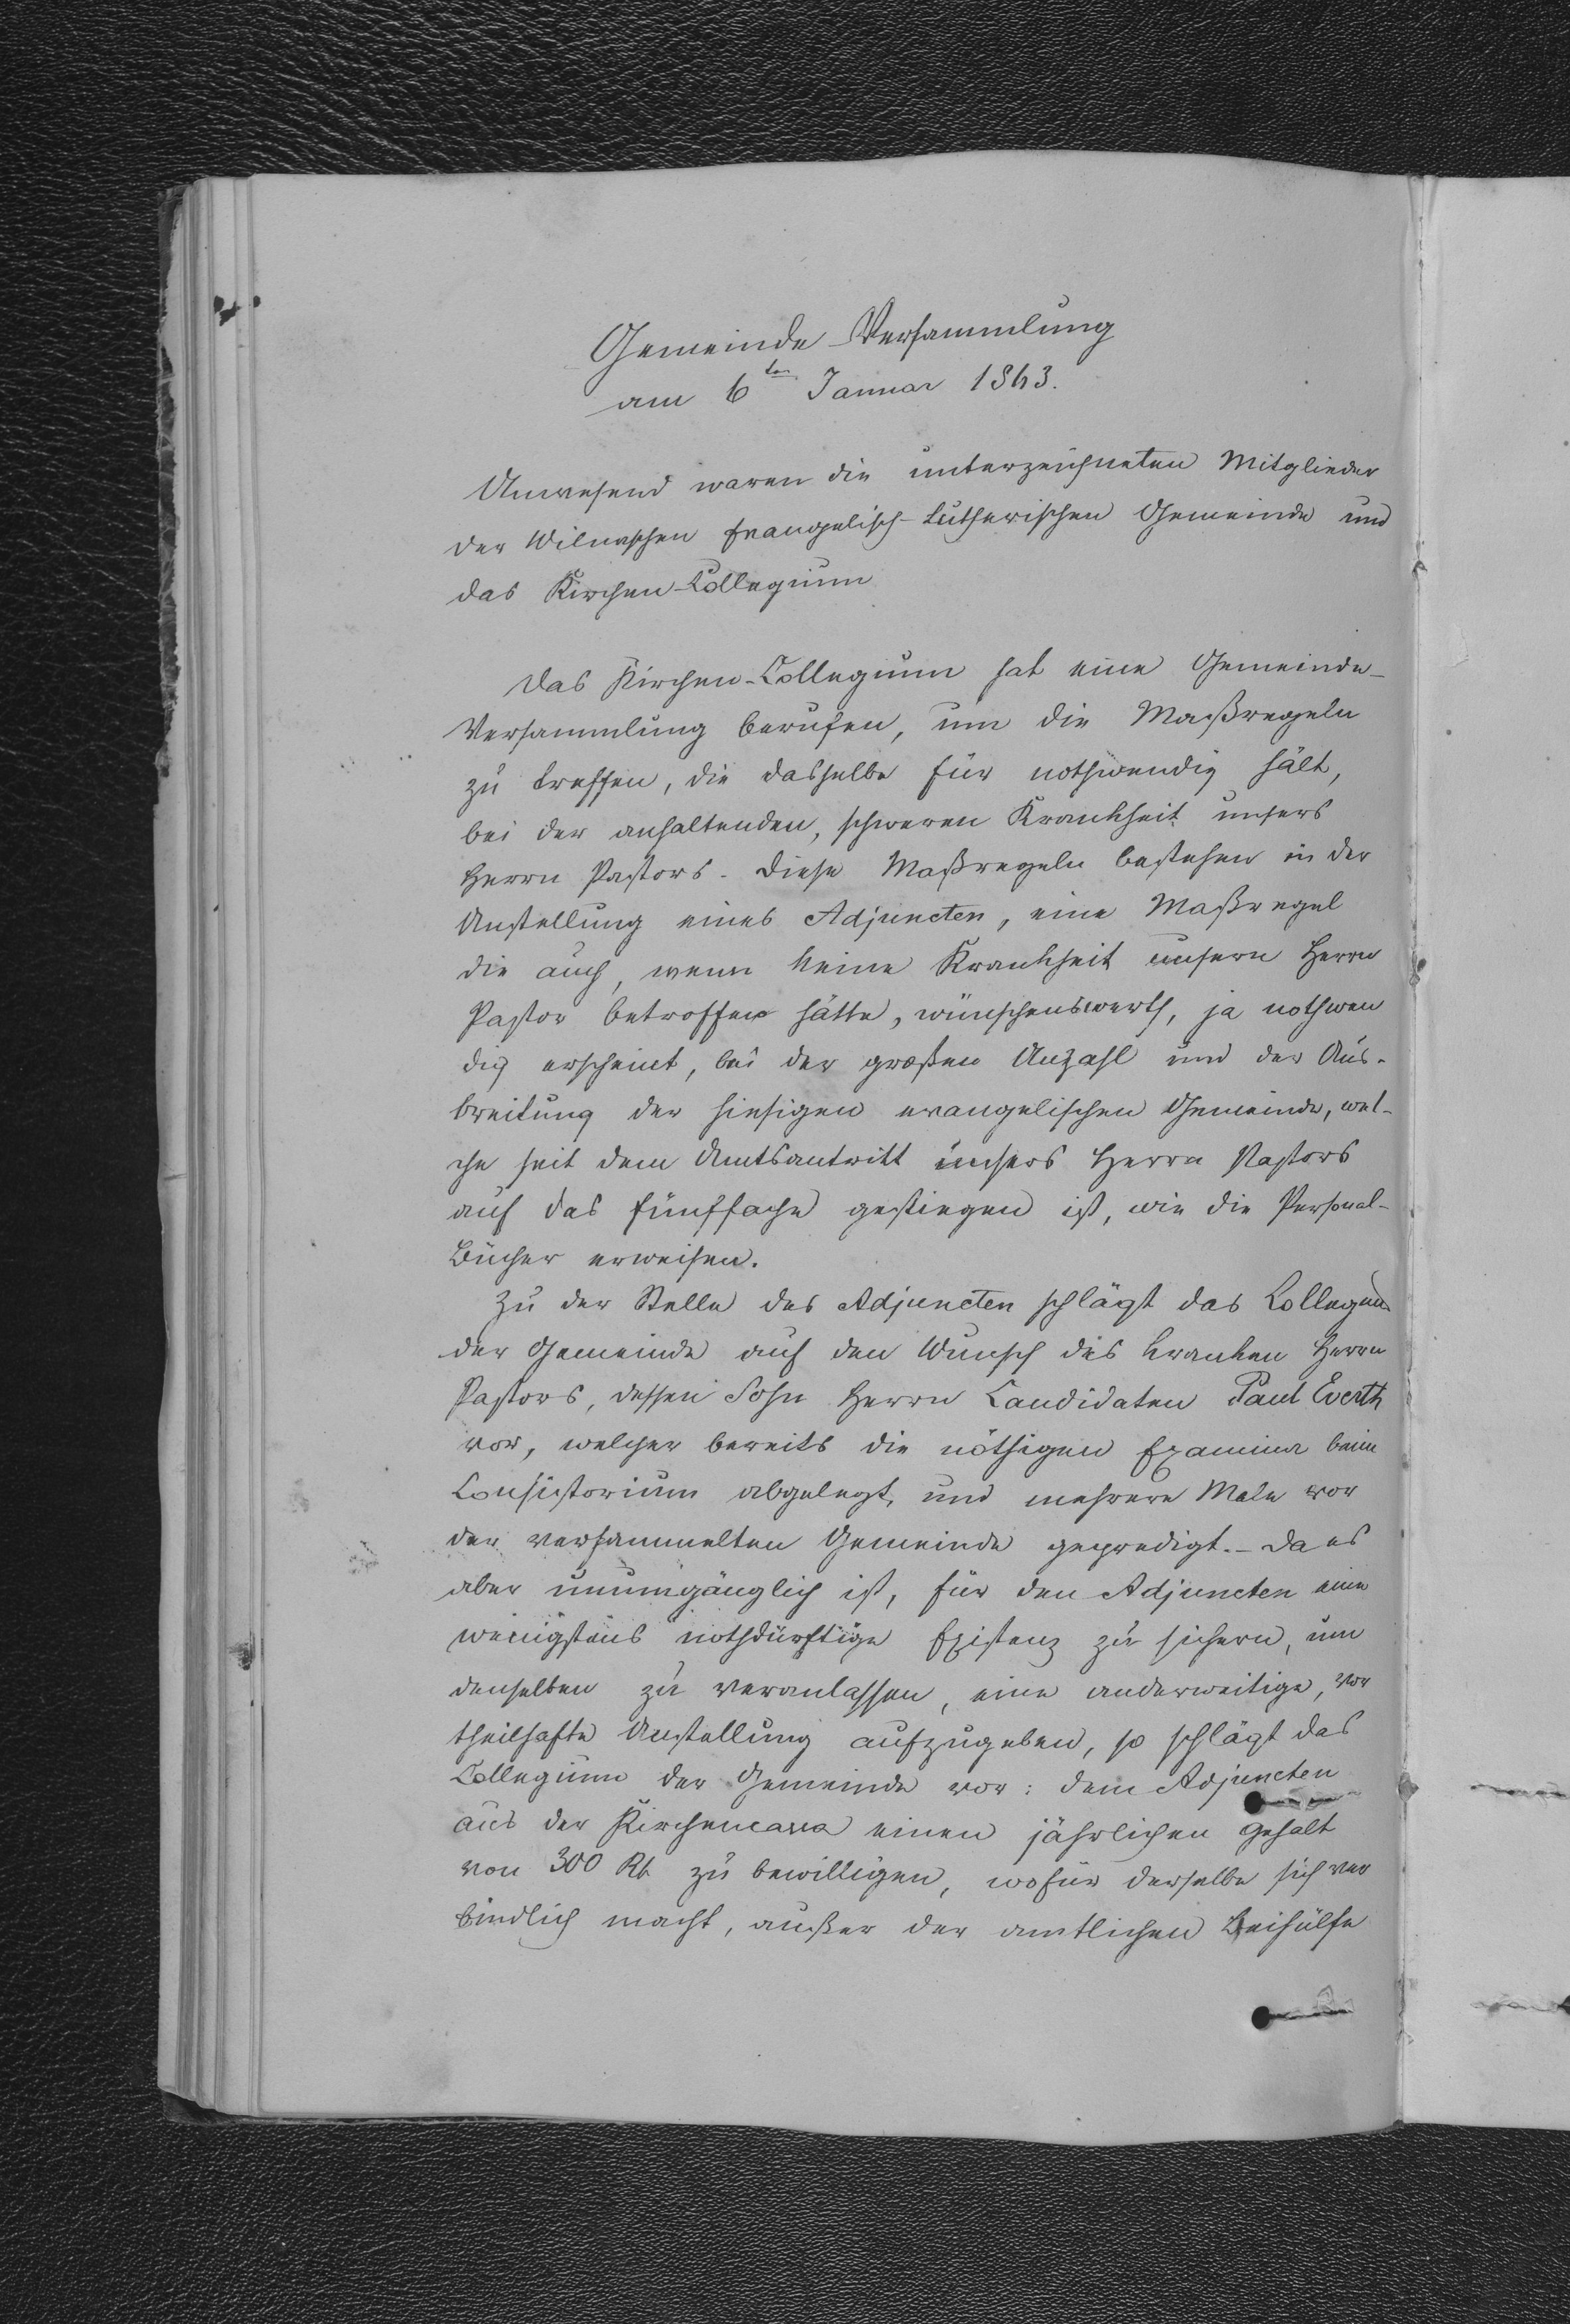 Gemeinde-Versammlung
am 6ten Januar 1863.
Anwesend waren die unterzeichneten Mitglieder
der Wilnaschen Evangelisch-Lutherischen Gemeinde und
das Kirchen-Collegium
Das Kirchen-Collegium hat eine Gemeinde-
Versammlung berufen, um die Maßregeln
zu treffen, die dasselbe für nothwendig hält,
bei der anhaltenden, schweren Krankheit unsers
Herrn Pastors. Diese Maßregeln bestehen in der
Anstellung eines Adjuncten, eine Maßregel
die auch, wenn keine Krankheit unsern Herrn
Pastor betroffen hätte, wünschenswerth, ja nothwen
dig erscheint, bei der großen Anzahl und der Aus-
breitung der hiesigen evangelischen Gemeinde, wel-
che seit dem Amtsantritt unsers Herrn Pastors
auf das fünffache gestiegen ist, wie die Personal-
Bücher erweisen.
Zu der Stelle des Adjuncten schlägt das Collegium
der Gemeinde auf den Wunsch des kranken Herrn
Pastors, dessen Sohn Herrn Candidaten Paul Everth
vor, welcher bereits die nöthigen Examina beim
Consistorium abgelegt, und mehrere Male vor
der versammelten Gemeinde gepredigt. - Da es
aber unumgänglich ist, für den Adjuncten eine
wenigstens nothdürftige Existenz zu sichern, um
denselben zu veranlassen, eine anderweitige, vor
theilhafte Anstellung aufzugeben, so schlägt das
Collegium der Gemeinde vor: dem Adjuncten
aus der Kirchencassa einen jährlichen Gehalt
von 300 Rb. zu bewilligen, wofür derselbe sich ver
bindlich macht, außer der amtlichen Beihülfe